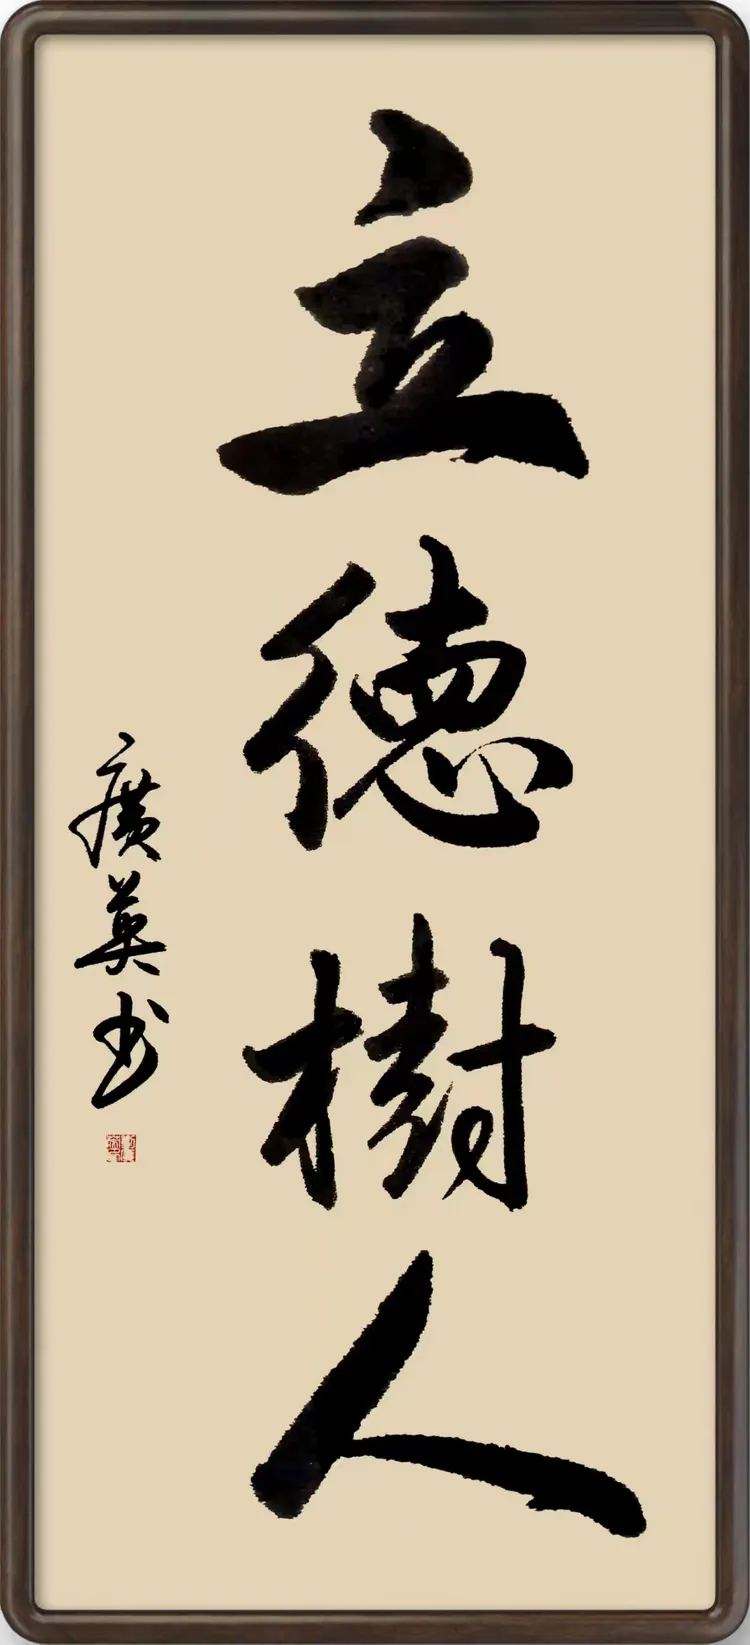 立德樹人
廣英书